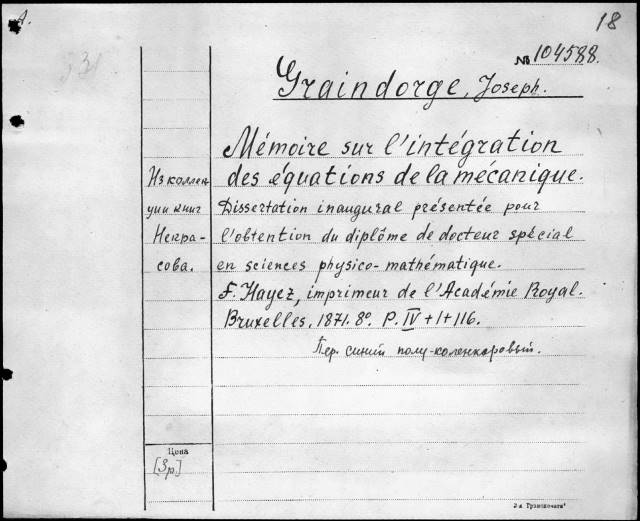 A.
18
№ 104588.
331
Graindorge, Joseph.
Mémoire sur l'intégration
des équations de la mécanique.
Dissertation inaugural présentée pour
l'obtention du diplôme de docteur spécial
en sciences physico-mathématique.
F. Hayez, imprimeur de l'Académie Royal.
Bruxelles, 1871. 8º. P. IV+1+116.
Пер. синий полу-коленкоровый.
Из коллек-
ции книг
Некра-
сова.
Цена
[3р.]
2-я Трэнспечать